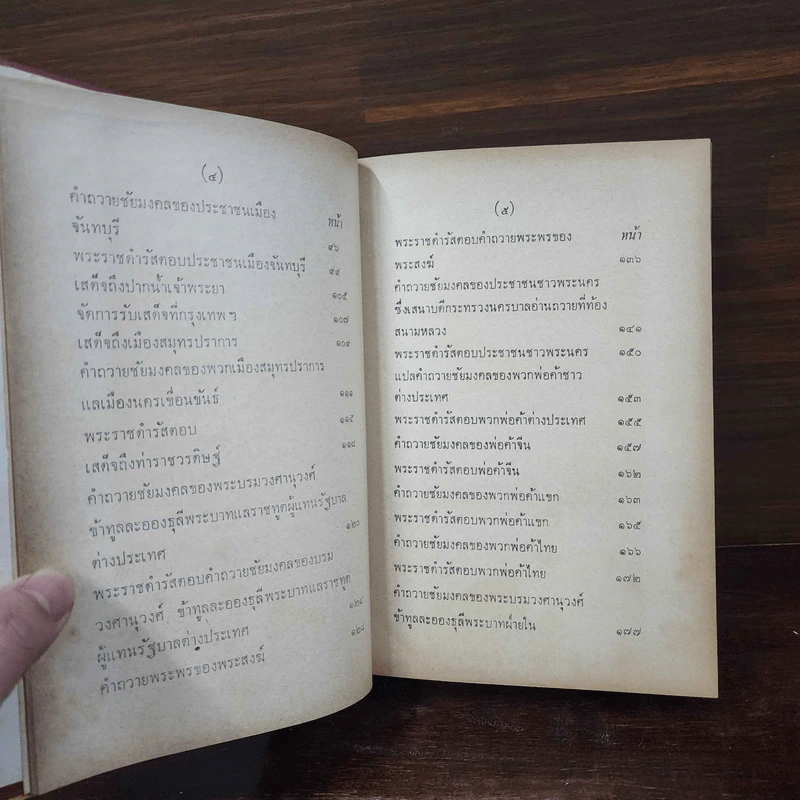 (๔)
หน้า
คำถวายชัยมงคลของประชาชนเมือง
จันทบุรี ๙๖
พระราชดำรัสตอบประชาชนเมืองจันทบุรี ๙๙
เสด็จถึงปากน้ำเจ้าพระยา ๑๐๕
จัดการรับเสด็จที่กรุงเทพฯ ๑๐๗
เสด็จถึงเมืองสมุทรปราการ ๑๐๙
คำถวายชัยมงคลของพวกเมืองสมุทรปราการ
แลเมืองนครเขื่อนขันธ์ ๑๑๑
พระราชดำรัสตอบ ๑๑๕
เสด็จถึงท่าราชวรดิษฐ์ ๑๑๘
คำถวายชัยมงคลของพระบรมวงศานุวงศ์
ข้าทูลละอองธุลีพระบาทแลราชทูตผู้แทนรัฐบาล
ต่างประเทศ ๑๒๐
พระราชดำรัสตอบคำถวายชัยมงคลของบรม
วงศานุวงศ์ ข้าทูลละอองธุลีพระบาทแลราชทูต
ผู้แทนรัฐบาลต่างประเทศ
คำถวายพระพรของพระสงฆ์ ๑๒๘
(๕)
หน้า
พระราชดำรัสตอบคำถวายพระพรของ
พระสงฆ์ ๑๓๖
คำถวายชัยมงคลของประชาชนชาวพระนคร
ซึ่งเสนาบดีกระทรวงนครบาลอ่านถวายที่ท้อง
สนามหลวง ๑๔๑
พระราชดำรัสตอบประชาชนชาวพระนคร ๑๕๐
แปลคำถวายชัยมงคลของพวกพ่อค้าชาว
ต่างประเทศ ๑๕๓
พระราชดำรัสตอบพวกพ่อค้าต่างประเทศ ๑๕๕
คำถวายชัยมงคลของพ่อค้าจีน ๑๕๗
พระราชดำรัสตอบพ่อค้าจีน ๑๖๒
คำถวายชัยมงคลของพวกพ่อค้าแขก ๑๖๓
พระราชดำรัสตอบพวกพ่อค้าแขก ๑๖๕
คำถวายชัยมงคลของพวกพ่อค้าไทย ๑๖๖
พระราชดำรัสตอบพวกพ่อค้าไทย ๑๗๒
คำถวายชัยมงคลของพระบรมวงศานุวงศ์
ข้าทูลละอองธุลีพระบาทฝ่ายใน ๑๗๗